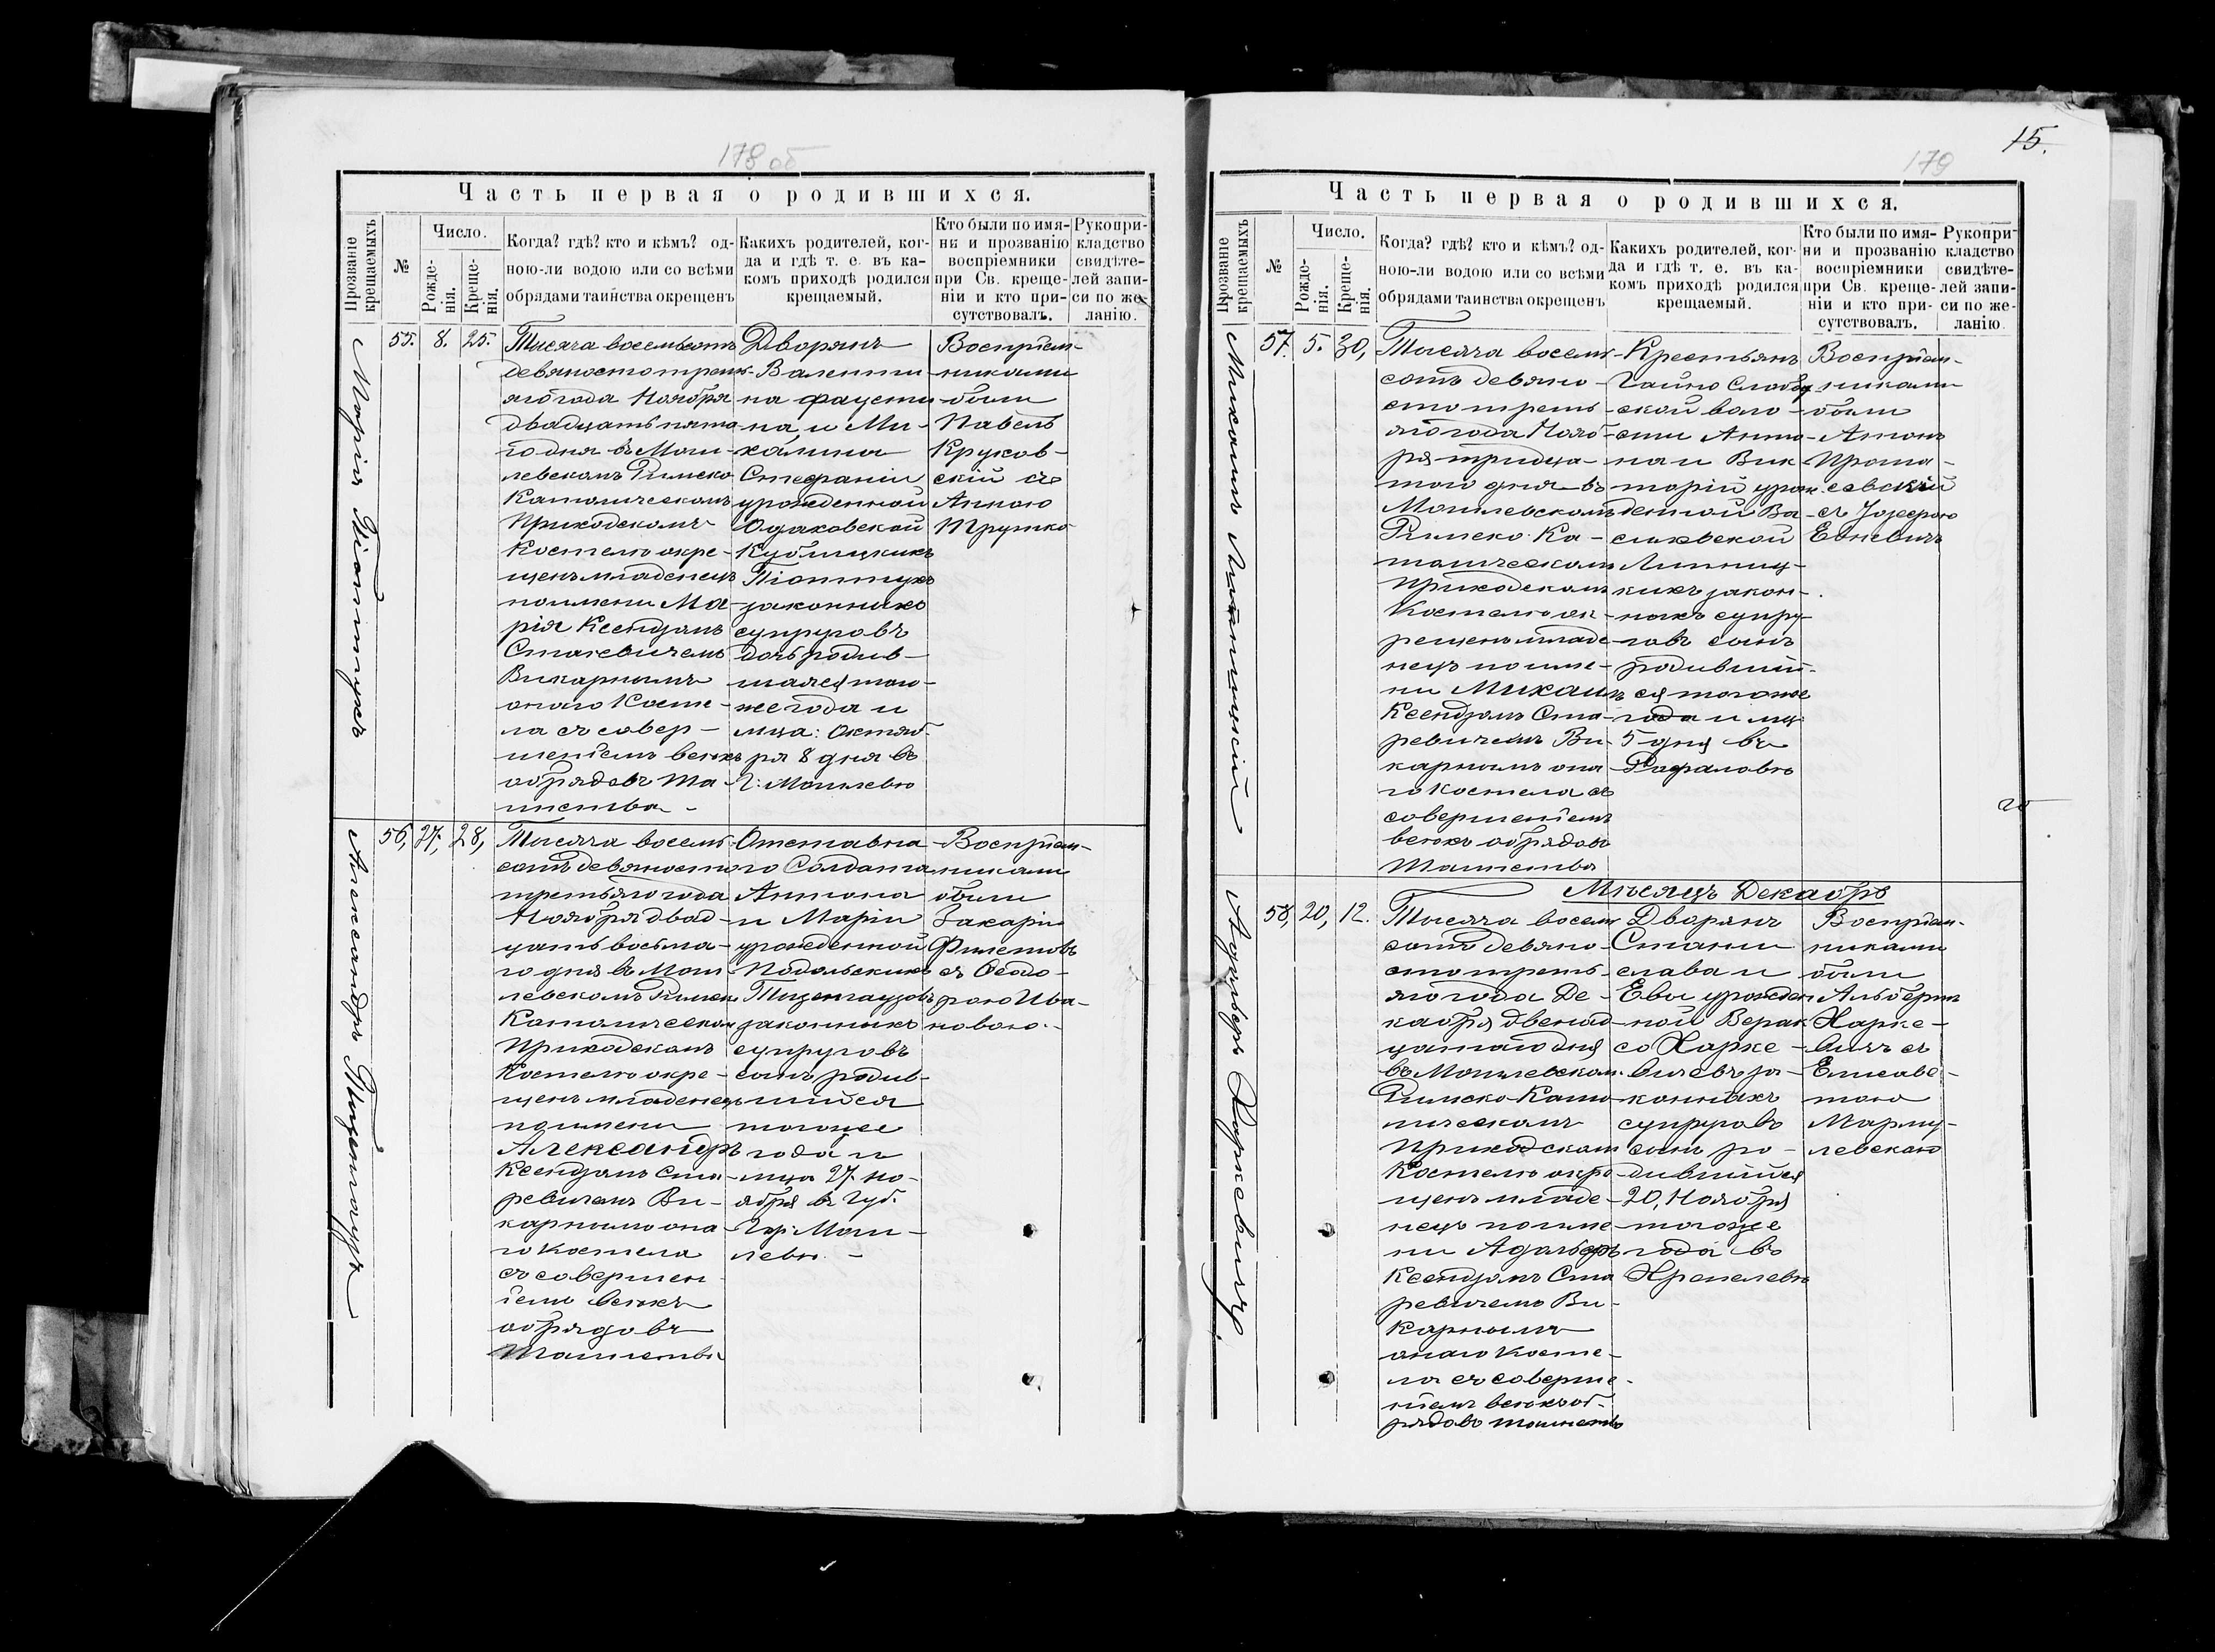 178 об
Часть первая о родившихся.
Прозваніе крещаемыхъ
№
Число.
Рожде-
нія.
Креще-
нія.
Когда? гдѣ? кто и кѣмъ? од-
ною-ли водою или со всѣми
обрядами таинства окрещенъ
Какихъ родителей, ког-
да и гдѣ т. е. въ ка-
комъ приходѣ родился
крещаемый.
Кто были по имя-
ни и прозванію
воспріемники
при Св. креще-
ніи и кто при-
сутствовалъ.
Рукопри-
кладство
свидѣте-
лей запи-
си по же-
ланію.
Марія Піонтухъ
55. 8. 25.
Тысяча восемьсотъ
девяносто треть-
яго года Ноября
двадцать пята-
го дня въ Моги-
левскомъ Римско
Католическомъ
Приходскомъ
Костелѣ окре-
щенъ младенецъ
по имени Ма-
рія Ксендзомъ
Викарнымъ
онаго Косте-
ла съ совер-
шеніемъ всѣхъ
обрядовъ Та-
инства
Дворянъ
Валенти-
на Фаусти-
на и Ми-
халина
Стефаніи
урожденной
Піонтухъ
законныхъ
супруговъ
дочь родив-
шаяся того-
же года и
мца: Октяб-
ря 8 дня въ
г: Могилевѣ
Воспріем-
никами
были
Павелъ
Круков-
скій съ
Анною
Прушко
Александръ Тизенгаузъ
56, 27, 28,
Тысяча восемь-
сотъ девяносто
третьяго года
Ноября двад-
цать восьма-
го дня въ Моги-
левскомъ Римско
Католическом
Приходскомъ
Костелѣ окре-
щенъ младенецъ
по имени
Александръ
Ксендзомъ Ста-
ревичемъ Ви-
карнымъ она-
го Костела
съ совершен
іемъ всѣхъ
обрядовъ
Таинства
Отставна-
го Солдата
Антона
и Маріи
урожденной
Подольскихъ
Тизенгаузовъ
законныхъ
супруговъ
сынъ родив-
шийся
тогоже
года и
мца 27 Но-
ября въ Губ.
Гор: Моги-
левѣ. -
Воспріем-
никами
были
Захарій
Филеповъ
съ Ѳеодо-
рою Ива-
новою. -
15.
179
Часть первая о родившихся.
Прозваніе крещаемыхъ
№
Число.
Рожде-
нія.
Креще-
нія.
Когда? гдѣ? кто и кѣмъ? од-
ною-ли водою или со всѣми
обрядами таинства окрещенъ
Какихъ родителей, ког-
да и гдѣ т. е. въ ка-
комъ приходѣ родился
крещаемый.
Кто были по имя-
ни и прозванію
воспріемники
при Св. креще-
ніи и кто при-
сутствовалъ.
Рукопри-
кладство
свидѣте-
лей запи-
си по же-
ланію.
Михаилъ Липницкій
57. 5. 30,
Тысяча восемь-
сотъ девяно-
сто треть-
яго года Нояб-
ря тридца-
таго дня въ
Могилевскомъ
Римско Ка-
толическом
Приходскомъ
Костелѣ ок-
рещенъ младе-
нецъ по име-
ни Михаилъ
Ксендзомъ Ста-
ревичемъ Ви-
карнымъ она-
го Костела съ
совершеніемъ
всѣхъ обрядовъ
Таинства
Крестьянъ
Гайно Слобод
ской воло-
сти Анто-
на и Вик-
торіи урож-
денной Ва-
силевской
Липниц-
кихъ закон-
ныхъ супру-
говъ сынъ
родившій-
ся тогоже
года и мца
5 дня въ
Рафаловѣ
Воспріем-
никами
были
Антонъ
съ Юзефою
Мѣсяцъ Декабрь
Адальберъ Харкевичъ
58, 20, 12.
Тысяча восемь
сотъ девяно-
сто треть-
яго года Де-
кабря двенад-
цатаго дня
въ Могилевскомъ
Римско Като-
лическомъ
Приходскомъ
Костелѣ окре-
щенъ младе-
нецъ по име-
ни Адальберъ
Ксендзомъ Ста
ревичемъ Ви-
карнымъ
онаго Косте-
ла съ соверше-
ніемъ всѣхъ об-
рядовъ Таинства
Дворянъ
Стани-
слава и
Евы урожден
ной Верак
со Харке-
вичевъ за-
конныхъ
супруговъ
сынъ ро-
дившийся
20, Ноября
тогоже
года въ
Воспріем-
никами
были
Альбертъ
Харке-
вичъ съ
Елисаве-
тою